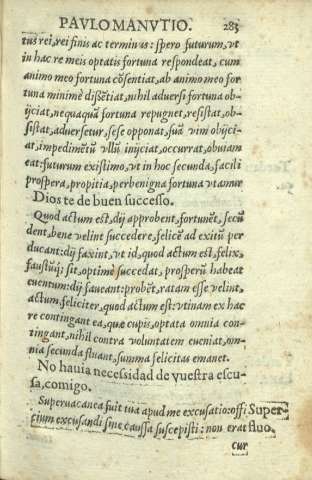 PAVLO MANVTIO. 283
tus rei, rei finis ac terminus: spero futurum, vt
in hac re meis optatis fortuna respondeat, cum
animo meo fortuna cõsentiat, ab animo meo for
tuna minimè disсẽtiat, nihil adversi fortuna ob-
ijciat, nequaquã fortuna repugnet, resistat, ob-
sistat, adversetur, sese opponat, suã vim obijci-
at, impedimẽtũ vllũ inijciat, occurrat, obuiam
eat: futurum existimo, vt in hoc secunda, facili
prospera, propitia, perbenigna fortuna vtamur
Dios te de buen successo.
Quod actum est, dij approbent, fortunẽt, secũ
dent, bene velint succedere, felicẽ ad exitũ per
ducant: dij faxint, vt id, quod actum est, felix,
faustũq; sit, optimè succedat, prosperũ habeat
euentum: dij faueant: probẽt, ratam esse velint,
actum, feliciter, quod actum est: vtinam ex hac
re contingant ea, quæ cupis, optata omnia con-
tingant, nihil contra voluntatem eueniat, om-
nia secunda fluant, summa felicitas emanet.
No hauia necessidad de vuestra escu-
sa, comigo.
Superuacanea fuit tua apud me excusatio: offi Super-
cium excusandi sine caussa suscepisti: non erat fluo.
cur